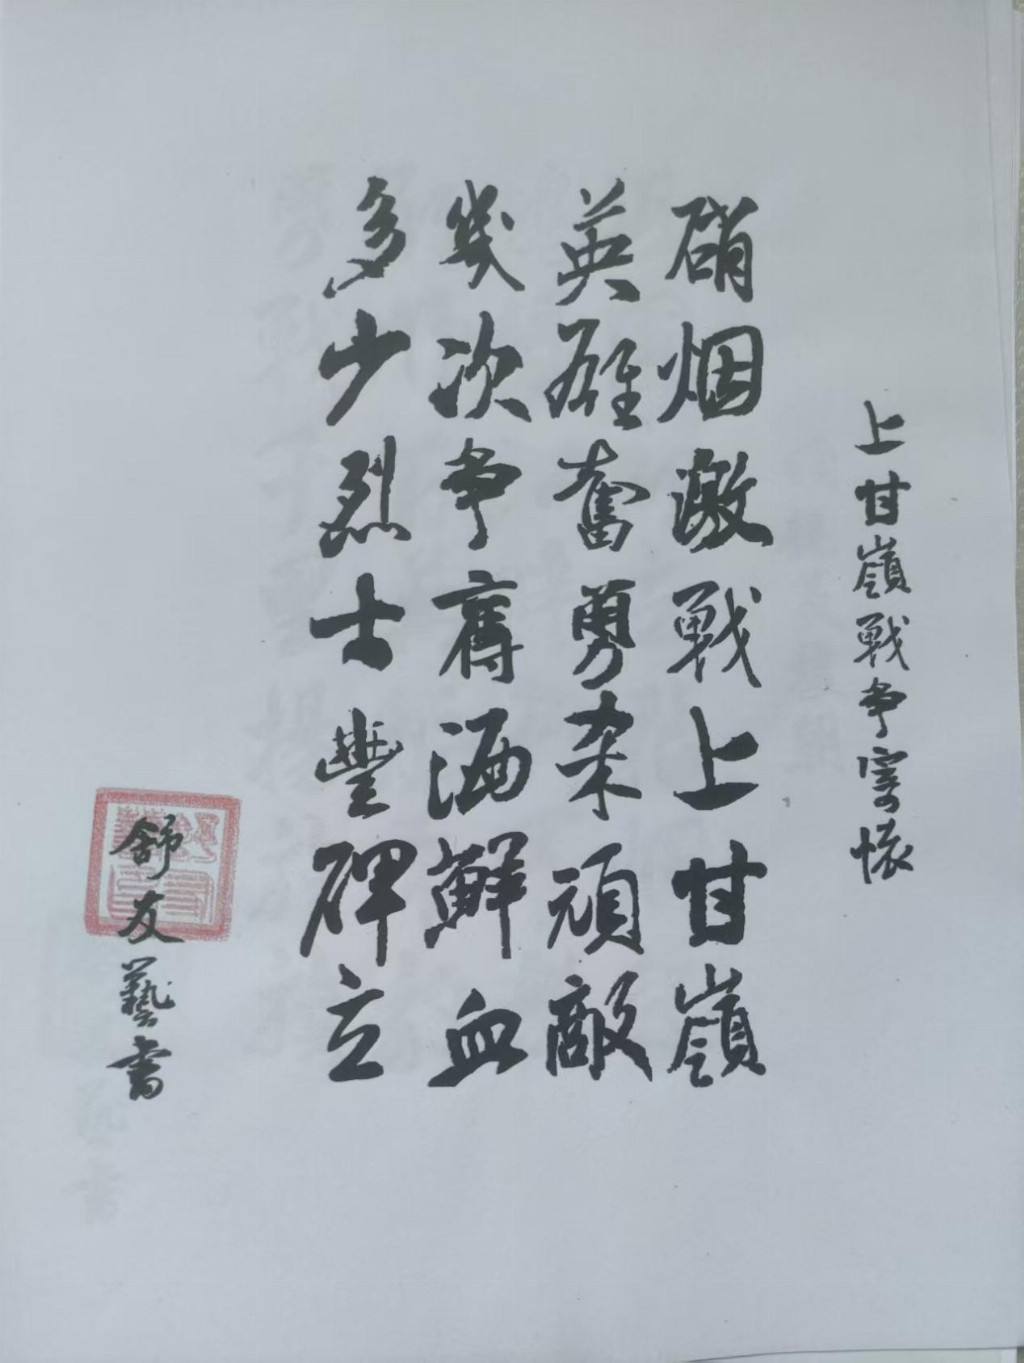 上甘嶺戰争寄懷
硝烟激戰上甘嶺
英雄奮勇杀頑敵
幾次争奪洒鮮血
多少烈士豐碑立
舒友藝書